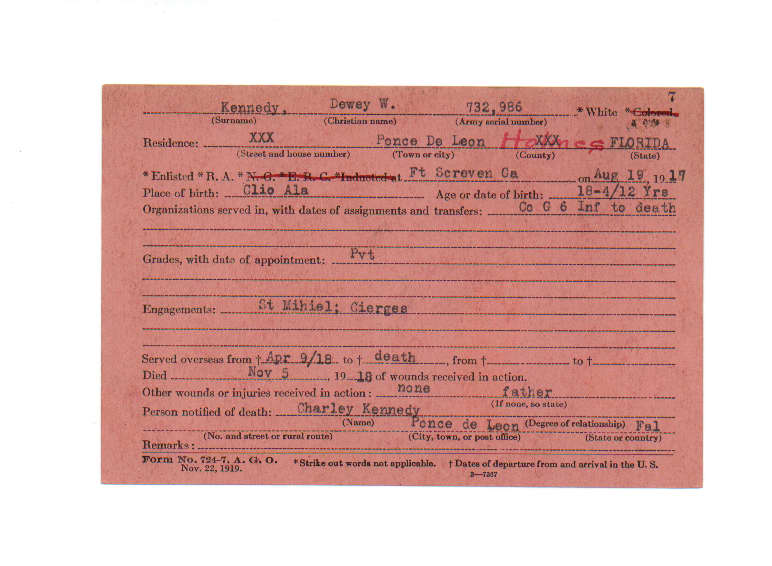 7
Kennedy, Dewey W. 732,986 * White * Colored.
(Surname) (Christian name) (Army serial number)
Residence: XXX Ponce De Leon Holmes XXX FLORIDA
(Street and house number) (Town or city) (County) (State)
* Enlisted * R. A. * N. G. * E. R. C. *Inducted at Ft Screven Ga on Aug 19, 1917
Place of birth: Clio Ala Age or date of birth: 18-4/12 Yrs
Organizations served in, with dates of assignments and transfers: Co G 6 Inf to death
Grades, with date of appointment: Pvt
Engagements: St Mihiel; Cierges
Served overseas from † Apr 9/18 to † death, from † to †
Died Nov 5, 1918 of wounds received in action.
Other wounds or injuries received in action: none
father
(If none, so state)
Person notified of death: Charley Kennedy
(Name) (Degree of relationship)
Ponce de Leon Fal
(No. and street or rural route) (City, town, or post office) (State or country)
Remarks:
Form No. 724-7, A. G. O. *Strike out words not applicable. † Dates of departure from and arrival in the U. S.
Nov. 22, 1919. 3—7367